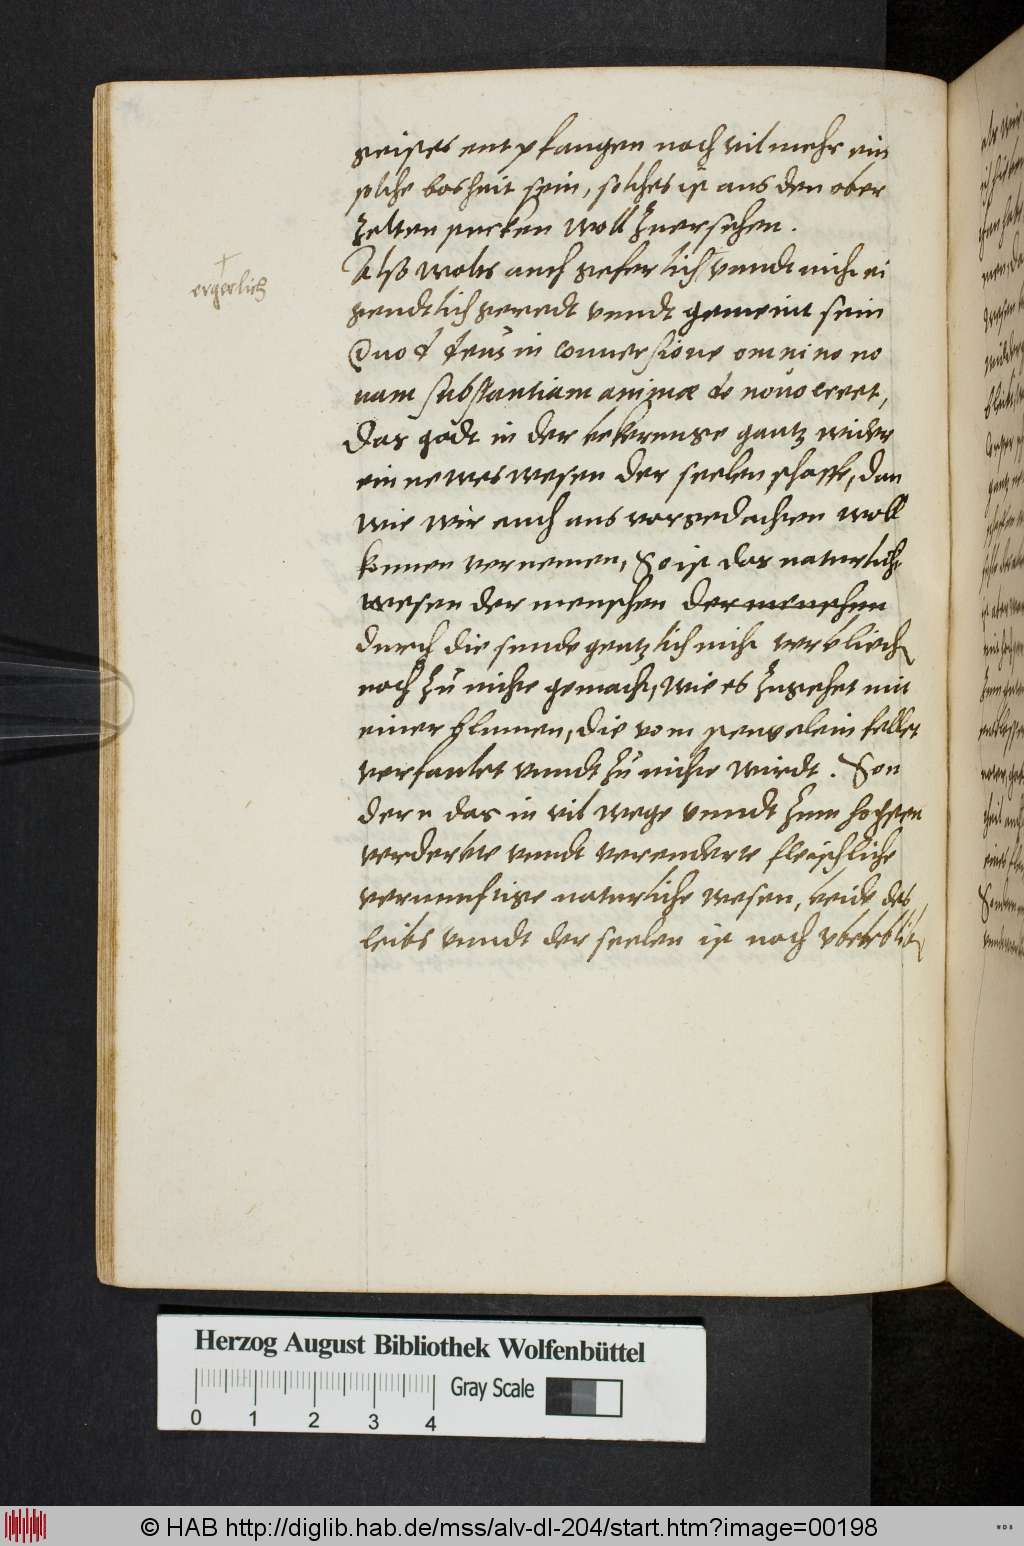 geistes entpfangen noch vil mehr ein
solche bosheit sein, solches ist aus den ober
zelten stucken woll zuersehen.
Also wolts auch geferlich vnndt nicht ei
gendtlich geredt vnndt gemeint sein
Quod deus in conuersione omnino no
uam substantiam animae de nouo creet,
Das godt in der bekerunge gantz wider
ein newes wesen der seelen schaffe, dan
wie wir auch aus vorgedachten woll
konnen vernemen, So ist das naturliche
wesen der menschen der menschen
durch die sunde gentzlich nicht verbliechen
noch zu nichte gemacht, wie es zugehet mit
einer blumen, die vom stengelein fellet
verfaulet vnndt zu nichte wirdt. Son
dern das in vil wege vnndt zum hochsten
verderbte vnndt verenderte fleischliche
vernunftige naturliche wesen, beide des
leibs vnndt der seelen ist noch
ergerlich
Herzog August Bibliothek Wolfenbüttel
Gray Scale
0 1 2 3 4
© HAB http://diglib.hab.de/mss/alv-dl-204/start.htm?image=00198